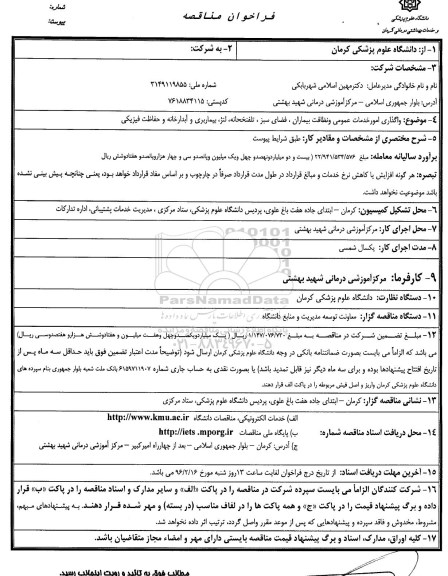 شماره:
پیوست:
فراخوان مناقصه
دانشگاه علوم پزشکی
و خدمات بهداشتی درمانی کرمان
۱- از: دانشگاه علوم پزشکی کرمان
۲- به شرکت:
۳- مشخصات شرکت:
نام و نام خانوادگی مدیرعامل: دکترمهین اسلامی شهربابکی شماره ملی: ۳۱۴۹۱۱۹۸۵۵
آدرس: بلوار جمهوری اسلامی – مرکزآموزشی درمانی شهید بهشتی کدپستی: ۷۶۱۸۸۳۴۱۱۵
۴- موضوع: واگذاری امورخدمات عمومی ونظافت بیماران ، فضای سبز ، تلفنخانه، لنژ، بیماربری و آبدارخانه و حفاظت فیزیکی
۵- شرح مختصری از مشخصات و مقادیر کار: طبق شرایط پیوست
برآورد سالیانه معامله: مبلغ ۲۲/۹۴۱/۵۳۴/۵۷۶ ( بیست و دو میلیاردونهصدو چهل ویک میلیون وپانصدو سی و چهار هزاروپانصدو هفتادوشش ریال
تبصره: هر گونه افزایش یا کاهش نرخ خدمات و مبالغ قرارداد در طول مدت قرارداد صرفاً در چارچوب و بر اساس مفاد قرارداد خواهد بـود، یعنی چنانچـه پـیش بینـی نشـده
باشد موضوعیت نخواهد داشت.
۶- محل تشکیل کمیسیون: کرمان – ابتدای جاده هفت باغ علوی، پردیس دانشگاه علوم پزشکی، ستاد مرکزی ، مدیریت خدمات پشتیبانی، اداره تدارکات
۷- محل اجرای کار: مرکزآموزشی درمانی شهید بهشتی
۸- مدت اجرای کار: یکسال شمسی
۹- کارفرما: مرکزآموزشی درمانی شهید بهشتی
۱۰- دستگاه نظارت: دانشگاه علوم پزشکی کرمان
۱۱- دستگاه مناقصه گزار: معاونت توسعه مدیریت و منابع دانشگاه
ParsNamadData
۰۲۱-۸۸۳۴۹۶۷۰-۵
۱۲- مبلغ تضمین شرکت در مناقصه به مبلغ ۱/۱۴۷/۰۷۶/۷۲۰ ریال ( یـک میلیاردویکصدوچهل وهفـت میلیـون و هفتادوشـش هـزارو هفتصـدوبیست ریـال)
می باشد که الزاماً می بایست بصورت ضمانتنامه بانکی در وجه دانشگاه علوم پزشکی کرمان ارسال شود (توضیحاً مدت اعتبار تضمین فوق باید حداقل سـه مـاه پـس از
تاریخ افتتاح پیشنهادها بوده و برای سه ماه دیگر نیز قابل تمدید باشد) یا بصورت نقدی به حساب جاری شماره ۶۱۵۹۷۱۱۹۰۷ بانک ملت شعبه بلوار جمهوری بنام سپرده های
دانشگاه علوم پزشکی کرمان واریز و اصل فیش مربوطه را در پاکت الف قرار دهند.
۱۳- نشانی مناقصه گزار: کرمان – ابتدای جاده هفت باغ علوی، پردیس دانشگاه علوم پزشکی، ستاد مرکزی
۱۴- محل دریافت اسناد مناقصه شماره:
الف) خدمات الکترونیکی، مناقصات دانشگاه http://www.kmu.ac.ir
ب) پایگاه ملی مناقصات http://iets .mporg.ir
ج) آدرس: کرمان – بلوار جمهوری اسلامی – بعد از چهارراه امیرکبیر – مرکز آموزشی درمانی شهید بهشتی
۱۵- آخرین مهلت دریافت اسناد: از تاریخ درج فراخوان لغایت ساعت ۱۳روز شنبه مورخ ۹۶/۲/۱۶ می باشد.
۱۶- شرکت کنندگان الزاماً می بایست سپرده شرکت در مناقصه را در پاکت «الف» و سایر مدارک و اسناد مناقصه را در پاکت «ب» قرار
داده و برگ پیشنهاد قیمت را در پاکت «ج» و همه پاکت ها را در لفاف مناسب (در بسته) و مهر شـده قـرار دهنـد. بـه پیشـنهادهای مـبهم،
مشروط، مخدوش و فاقد سپرده و پیشنهادهایی که پس از موعد مقرر واصل گردد، ترتیب اثر داده نخواهد شد.
۱۷- کلیه اوراق، مدارک، اسناد و برگ پیشنهاد قیمت مناقصه بایستی دارای مهر و امضاء مجاز متقاضیان باشد.
مطالب فوق به تائید و رویت اینجانب رسید.